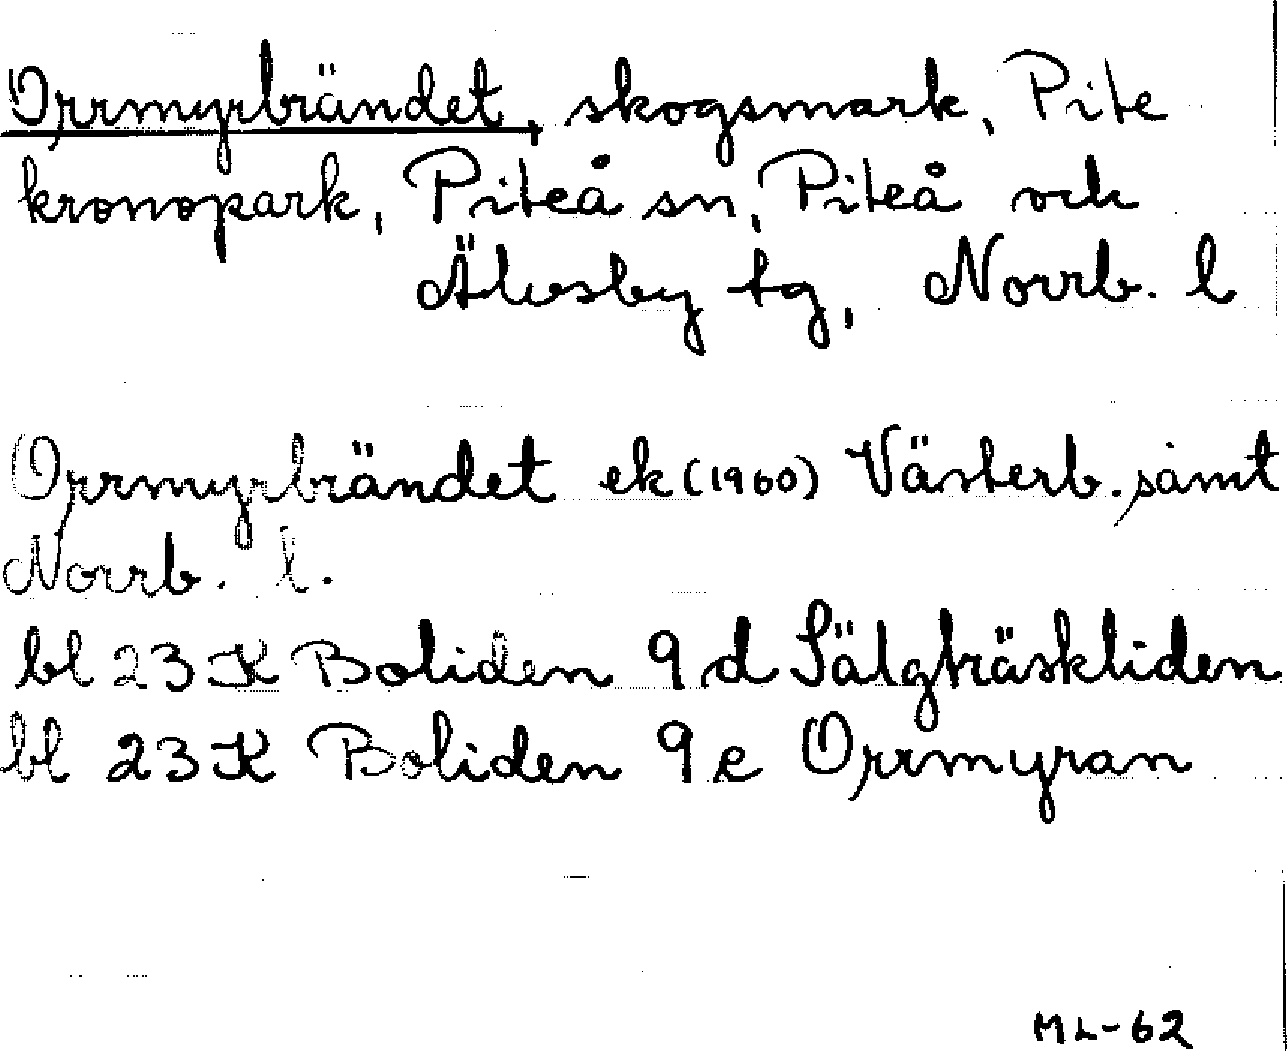 Orrmyrbrändet, skogsmark, Pite
kronopark, Piteå sn, Piteå och
Älvsby tg, Norrb. l
Orrmyrbrändet ek (1960) Västerb. samt
Norrb. l.
bl 23 K Boliden 9 d Sälgträskliden
bl 23 K Boliden 9 e Orrmyran
ML-62